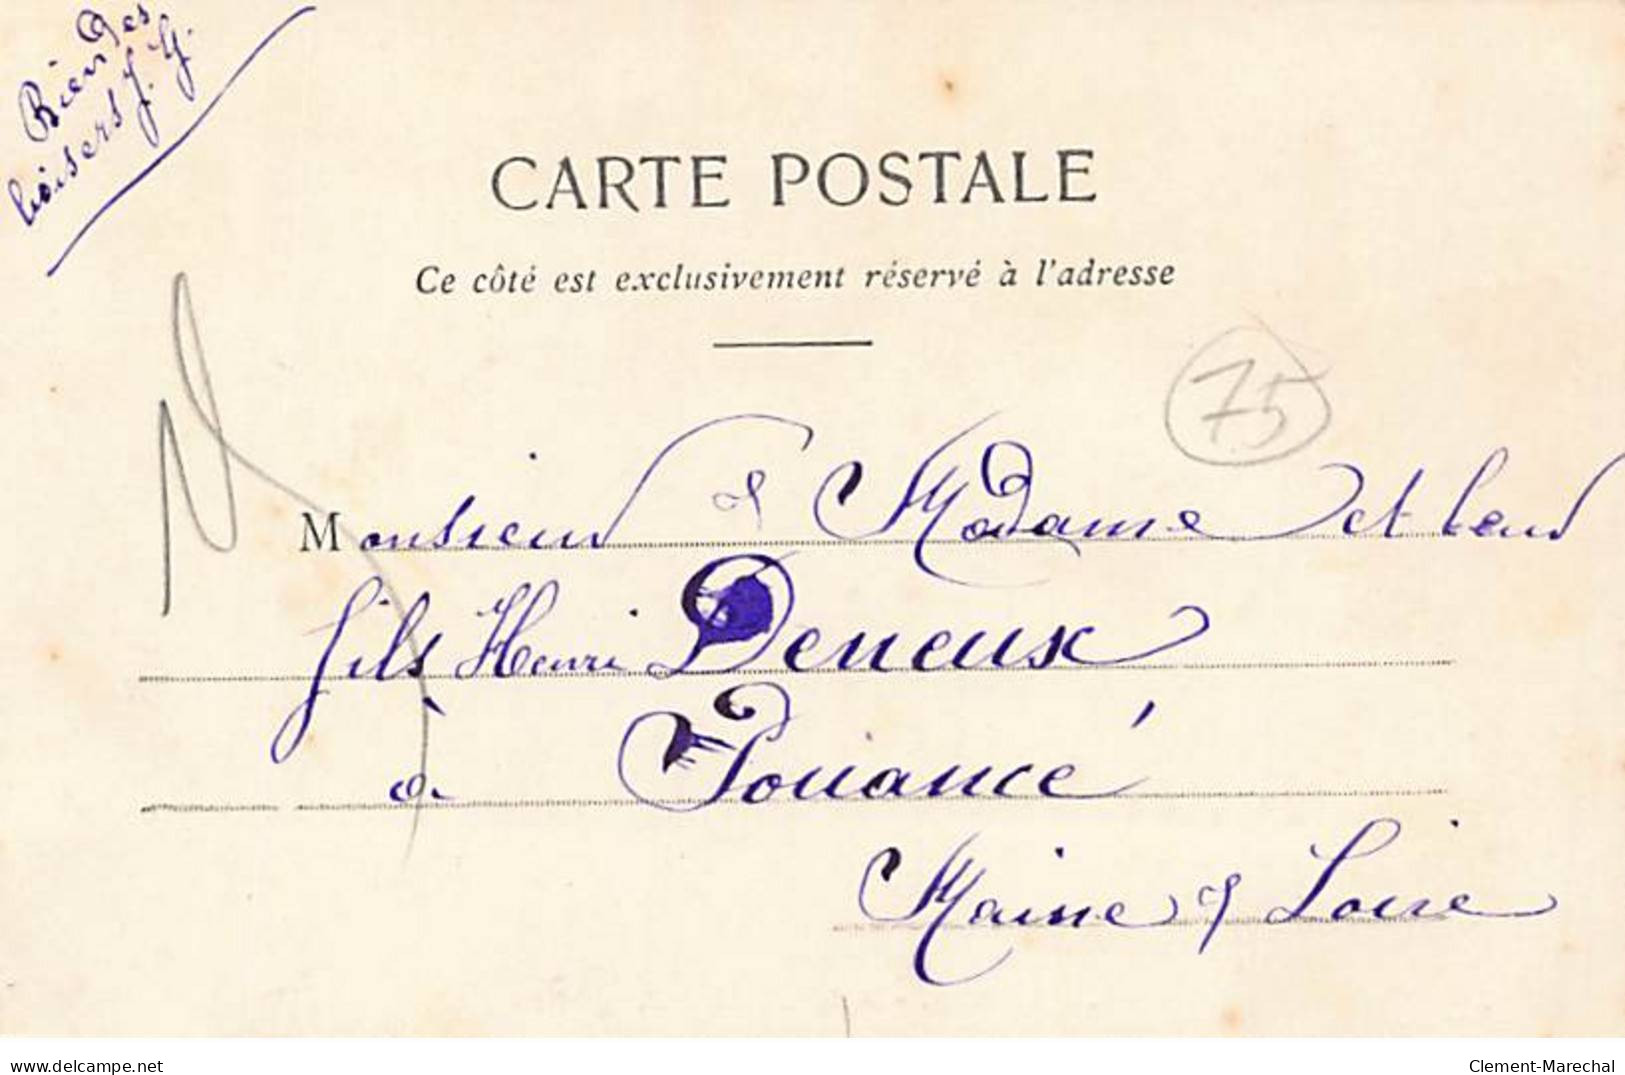 Bien des
baisers J. G.
CARTE POSTALE
Ce côté est exclusivement réservé à l'adresse
75
Monsieur & Madame et leur
fils Henri Deneux
à Pouancé
Maine & Loire
delcampe.net
Clement-Marechal